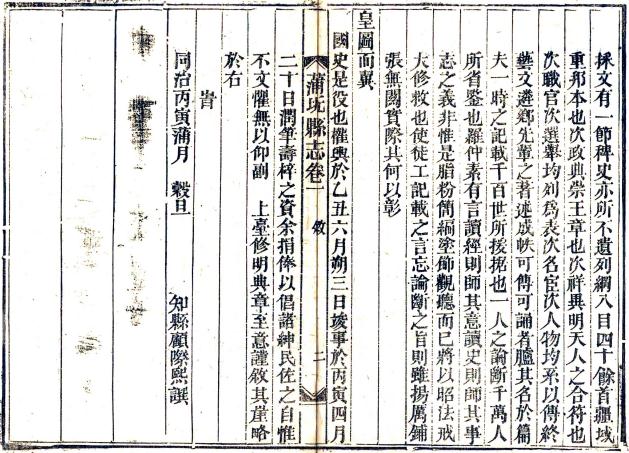 採文有一節稗史亦所不遺列綱八目四十餘首疆域
重邦本也次政典崇王章也次祥異明天人之合符也
次職官次選舉均列爲表次名宦次人物均系以傳終
藝文遴鄉先輩之著述成帙可傳可誦者臚其名於篇
夫一時之記載千百世所援據也一人之論斷千萬人
所省鑒也羅仲素有言讀經則師其意讀史則師其事
志之義非惟是脂粉簡編塗飾觀聽而已將以昭法戒
大修救也使徒工記載之言忘論斷之旨則雖揚厲鋪
張無關實際其何以彰
皇圖而翼
國史是役也權輿於乙丑六月朔三日竣事於丙寅四月
蒲圻縣志卷一 敘 二
二十日潤筆壽梓之資余捐俸以倡諸紳民佐之自惟
不文懼無以仰副 上臺修明典章至意謹敘其崖略
於右
旹
同治丙寅蒲月 穀旦 知縣顧際熙譔